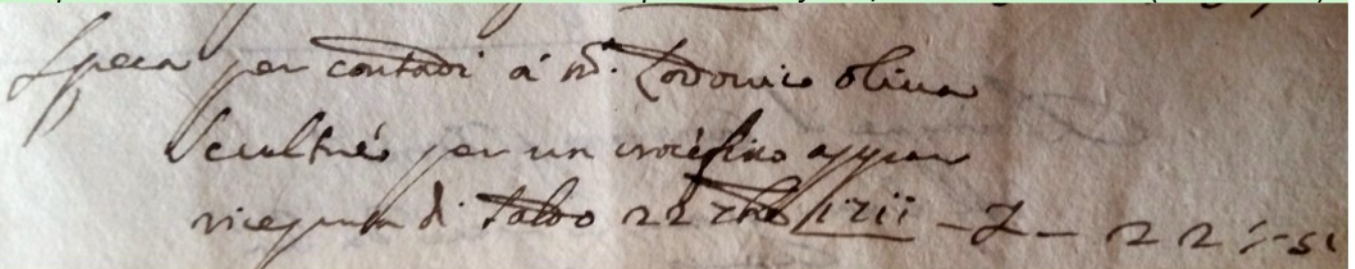 Spesa per contadi à mº. Lodovico Oliva
Scultre per un crocefisso appar
ricepuda di saldo 22 1711 - L - 22: